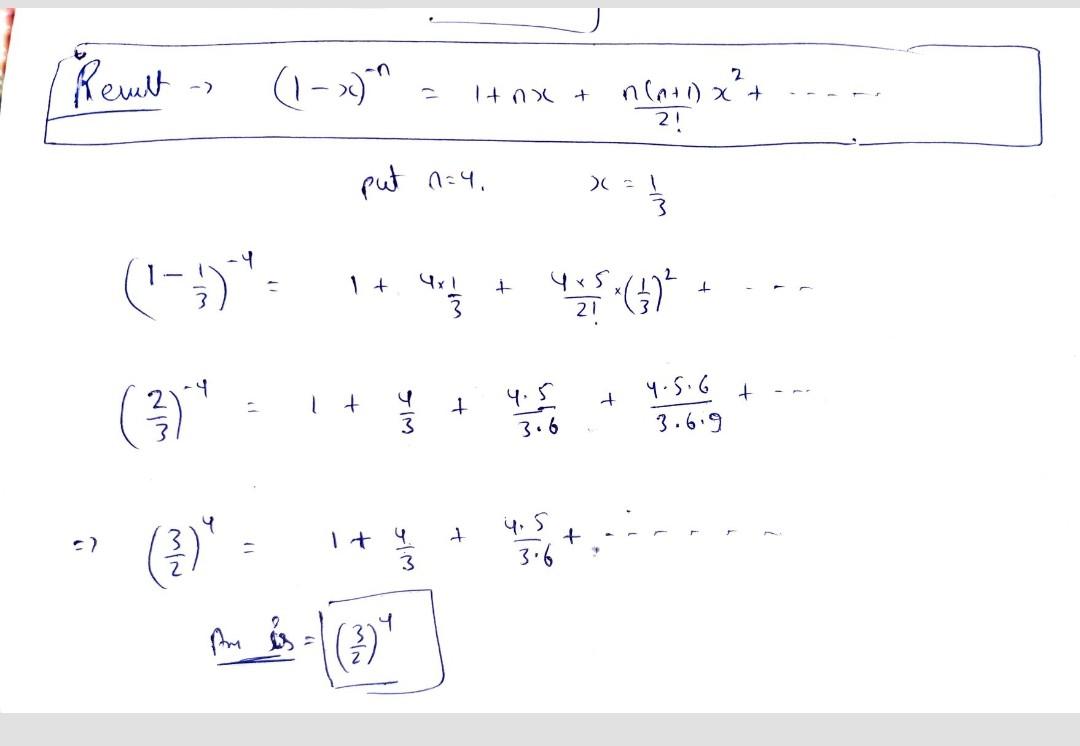 Result → (1-x)^-n = 1 + nx + n(n+1)/2! x^2 + -----
put n=4, x = 1/3
(1-1/3)^-4 = 1 + 4×1/3 + 4×5/2! × (1/3)^2 + ---
(2/3)^-4 = 1 + 4/3 + 4.5/3.6 + 4.5.6/3.6.9 + ---
=> (3/2)^4 = 1 + 4/3 + 4.5/3.6 + -------
Ans is = (3/2)^4